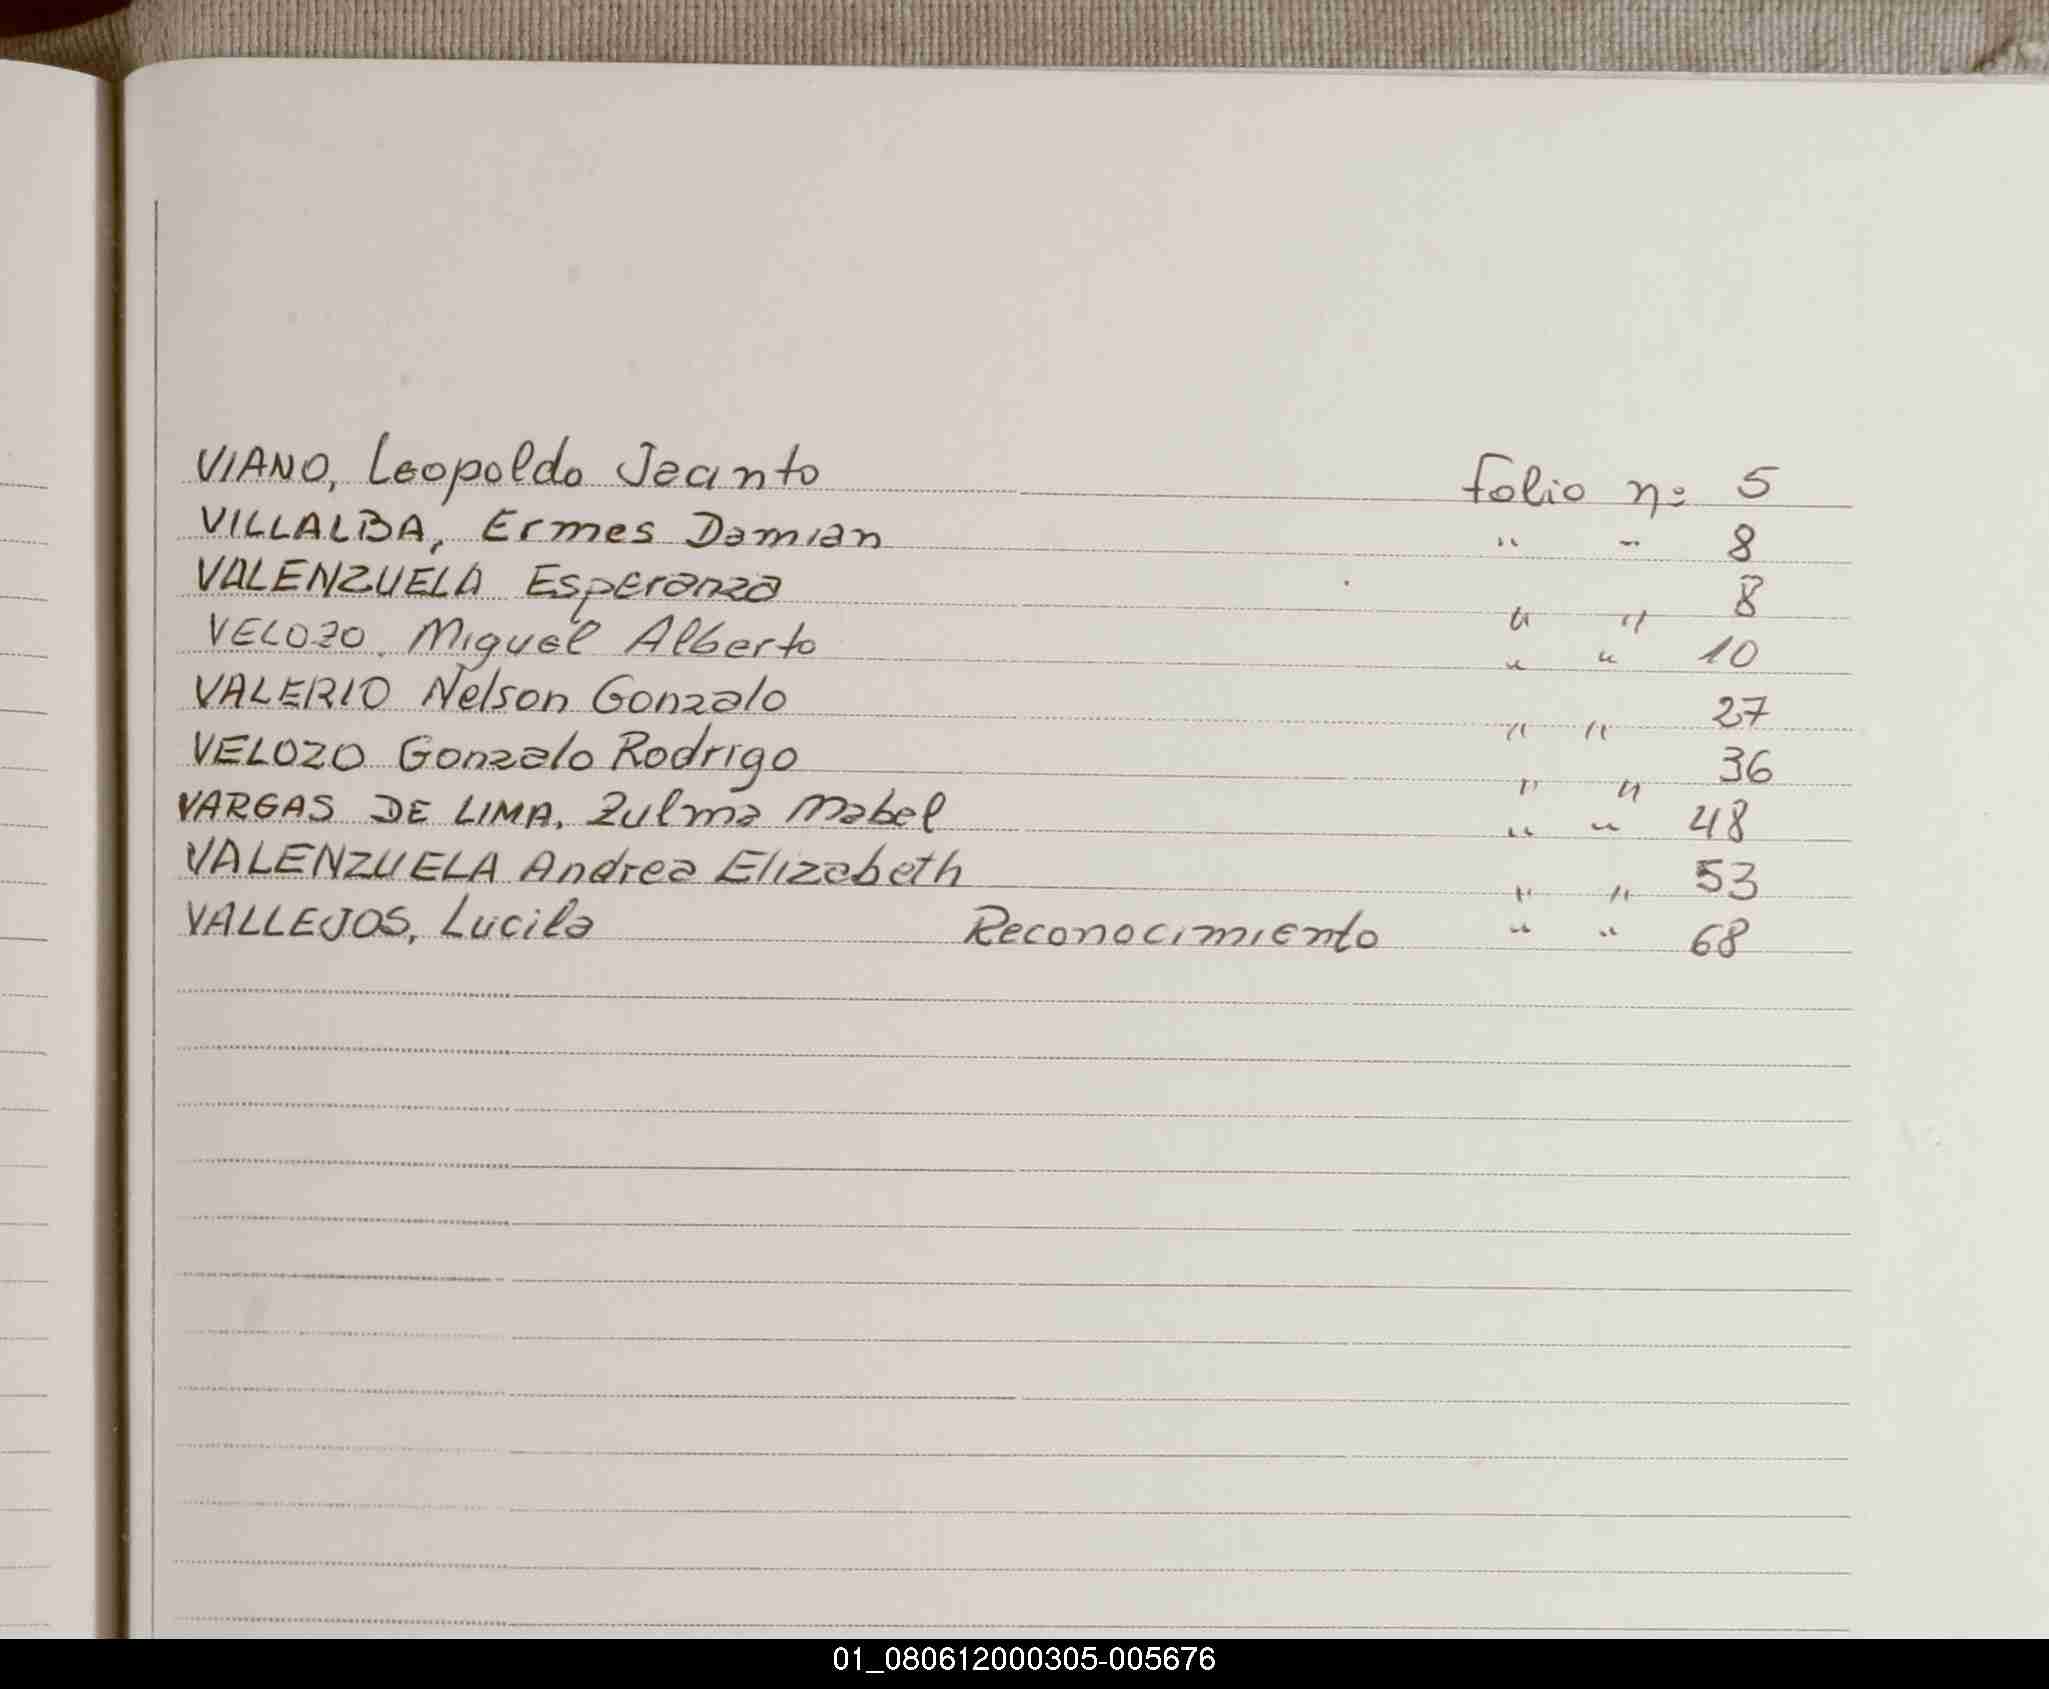 VIANO, Leopoldo Jacinto Folio nº 5
VILLALBA, Ermes Damian " " 8
VALENZUELA Esperanza " " 8
VELOZO, Miguel Alberto " " 10
VALERIO Nelson Gonzalo " " 27
VELOZO Gonzalo Rodrigo " " 36
VARGAS DE LIMA, Zulma Mabel " " 48
VALENZUELA Andrea Elizabeth " " 53
VALLEJOS, Lucila Reconocimiento " " 68
01_080612000305-005676